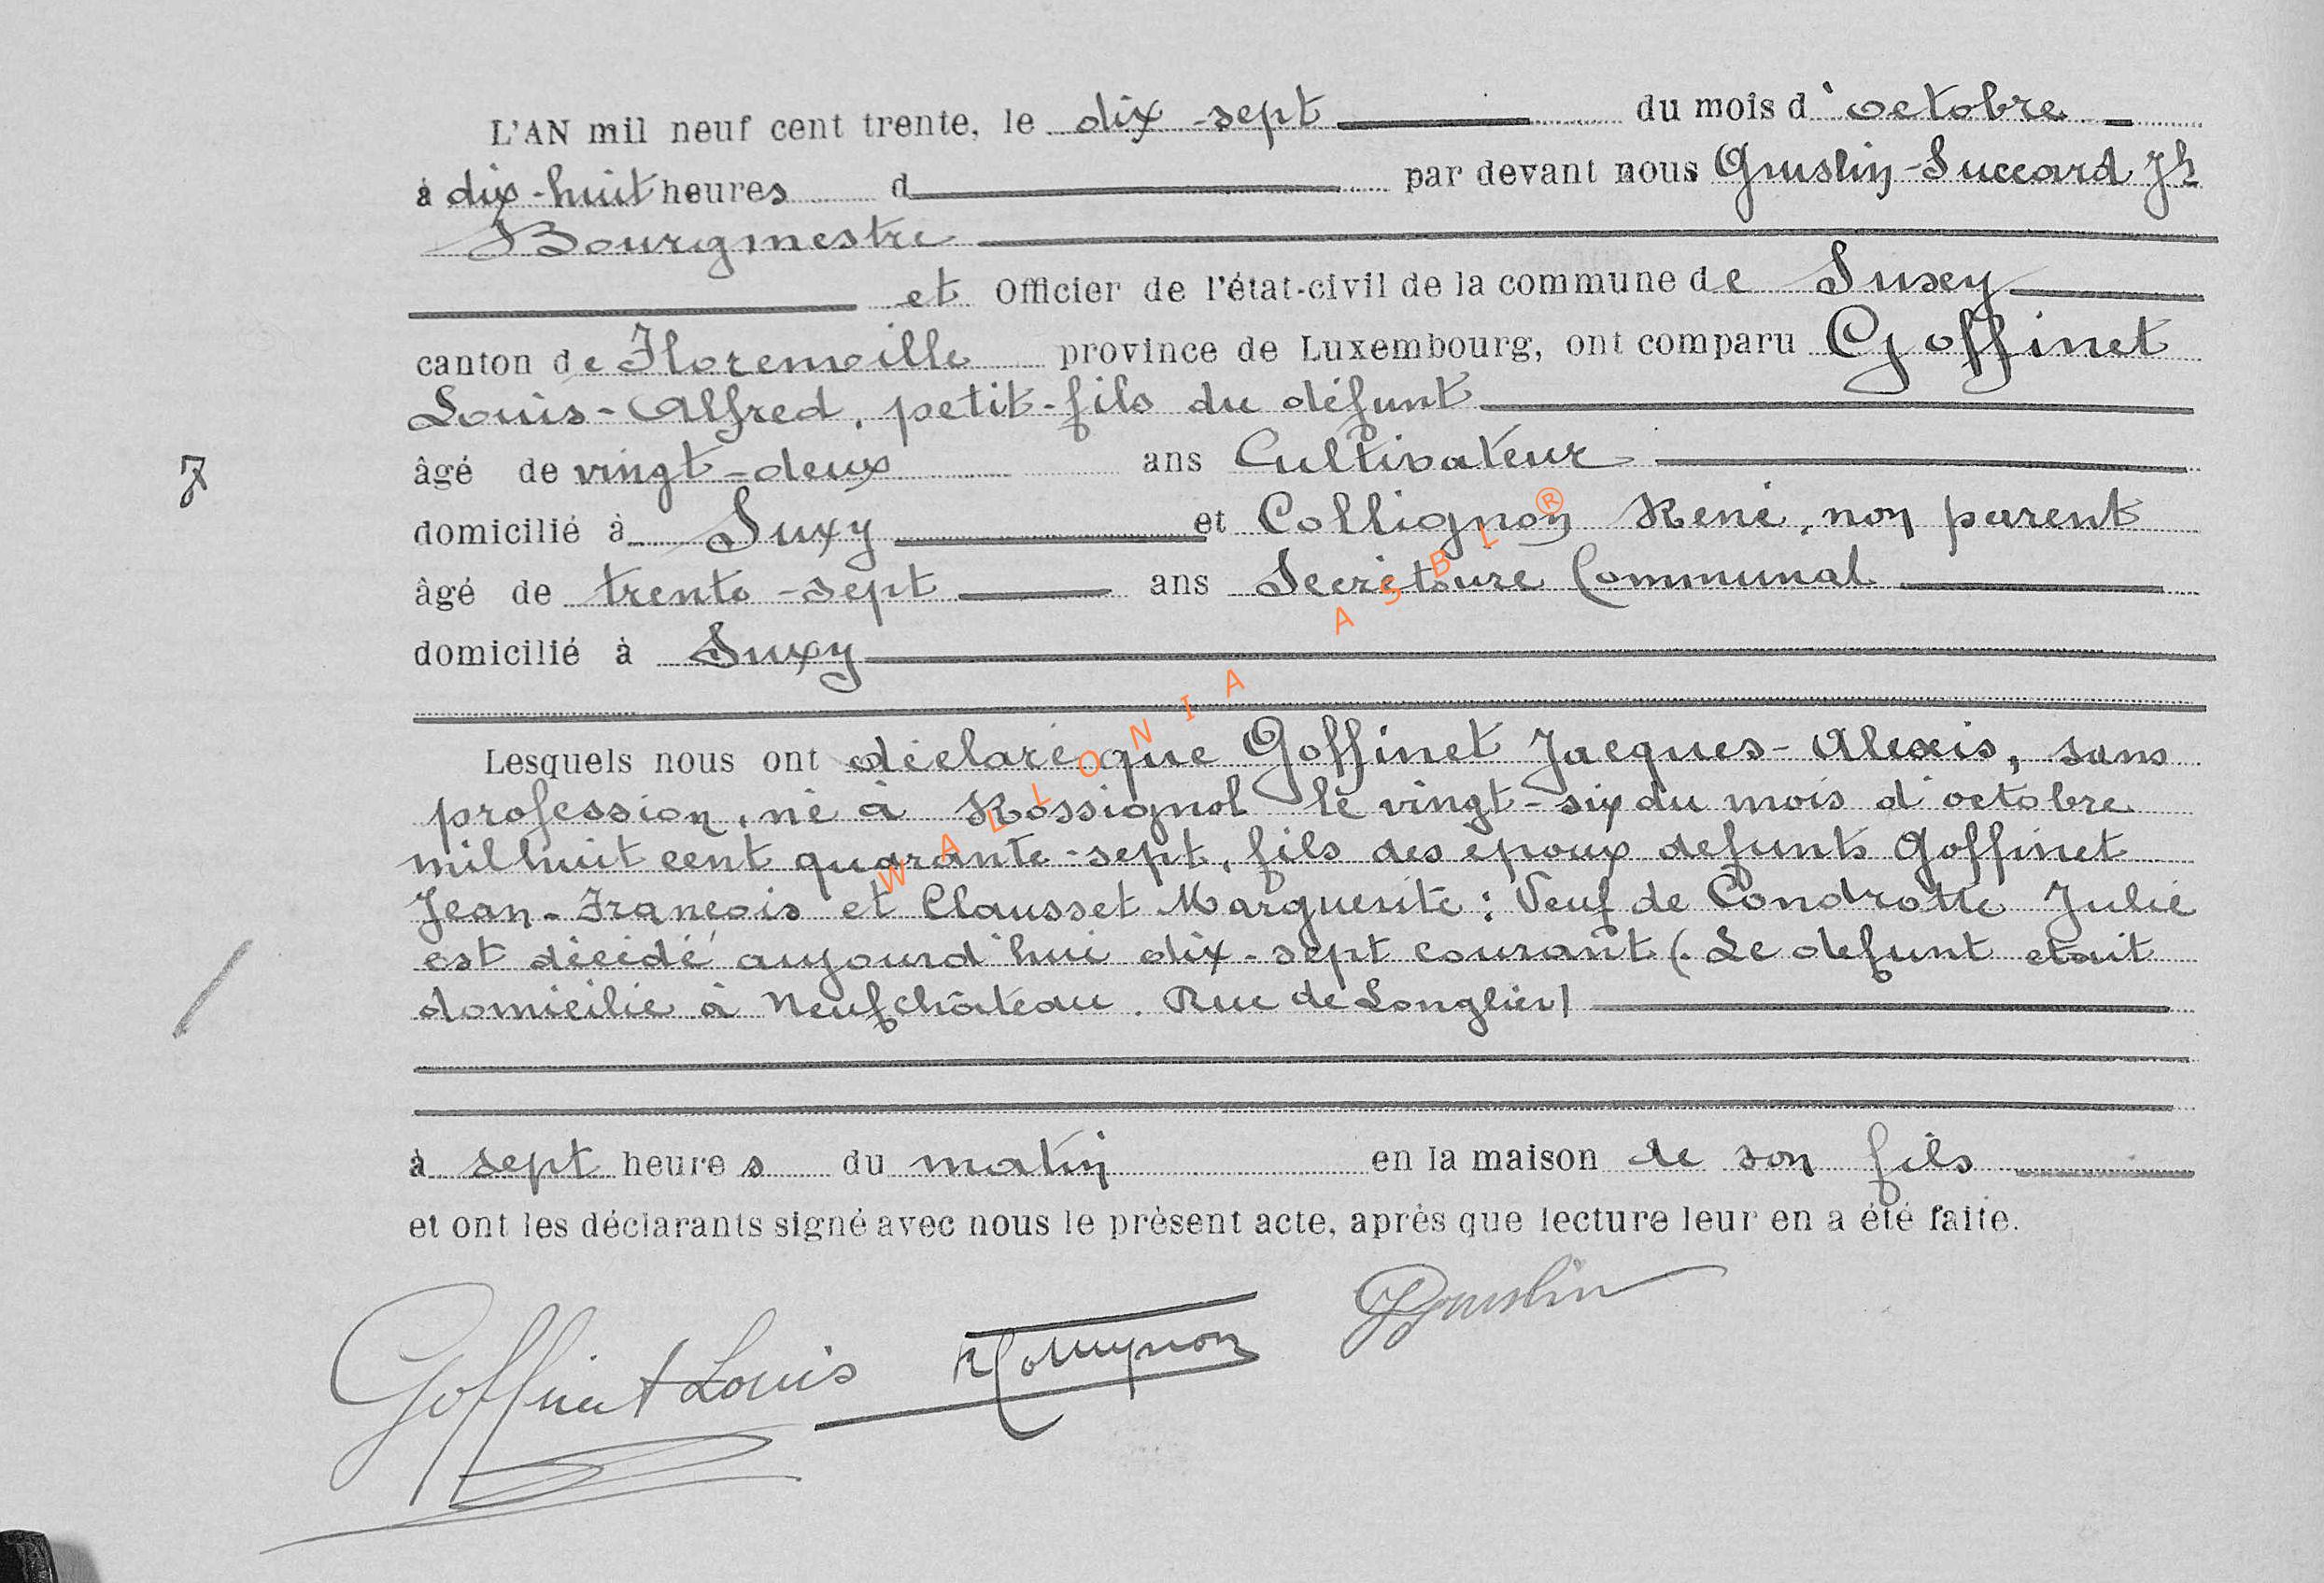 L'AN mil neuf cent trente, le dix-sept du mois d'octobre
à dix-huit heures d par devant nous Gruslin-Succard Jh
Bourgmestre
et Officier de l'état-civil de la commune de Suxey
canton de Florenville province de Luxembourg, ont comparu Goffinet
Louis-Alfred, petit-fils du défunt
âgé de vingt-deux ans Cultivateur
7
domicilié à Suxy et Collignon René, non parent
âgé de trente-sept ans Secrétaire Communal
domicilié à Suxy
Lesquels nous ont déclaré que Goffinet Jacques-Alexis, sans
profession, né à Rossignol le vingt-six du mois d'octobre
mil huit cent quarante-sept, fils des époux defunts Goffinet
Jean-François et Clausset Marguerite : Veuf de Condrotte Julie
est décidé aujourd'hui dix-sept courant (. Le defunt etait
domicilie à Neufchâteau. Rue de Longlier)
à sept heures du matin en la maison de son fils
et ont les déclarants signé avec nous le présent acte, après que lecture leur en a été faite.
Goffinet Louis R Collignon JGruslin
WALLONIA ASBL ®